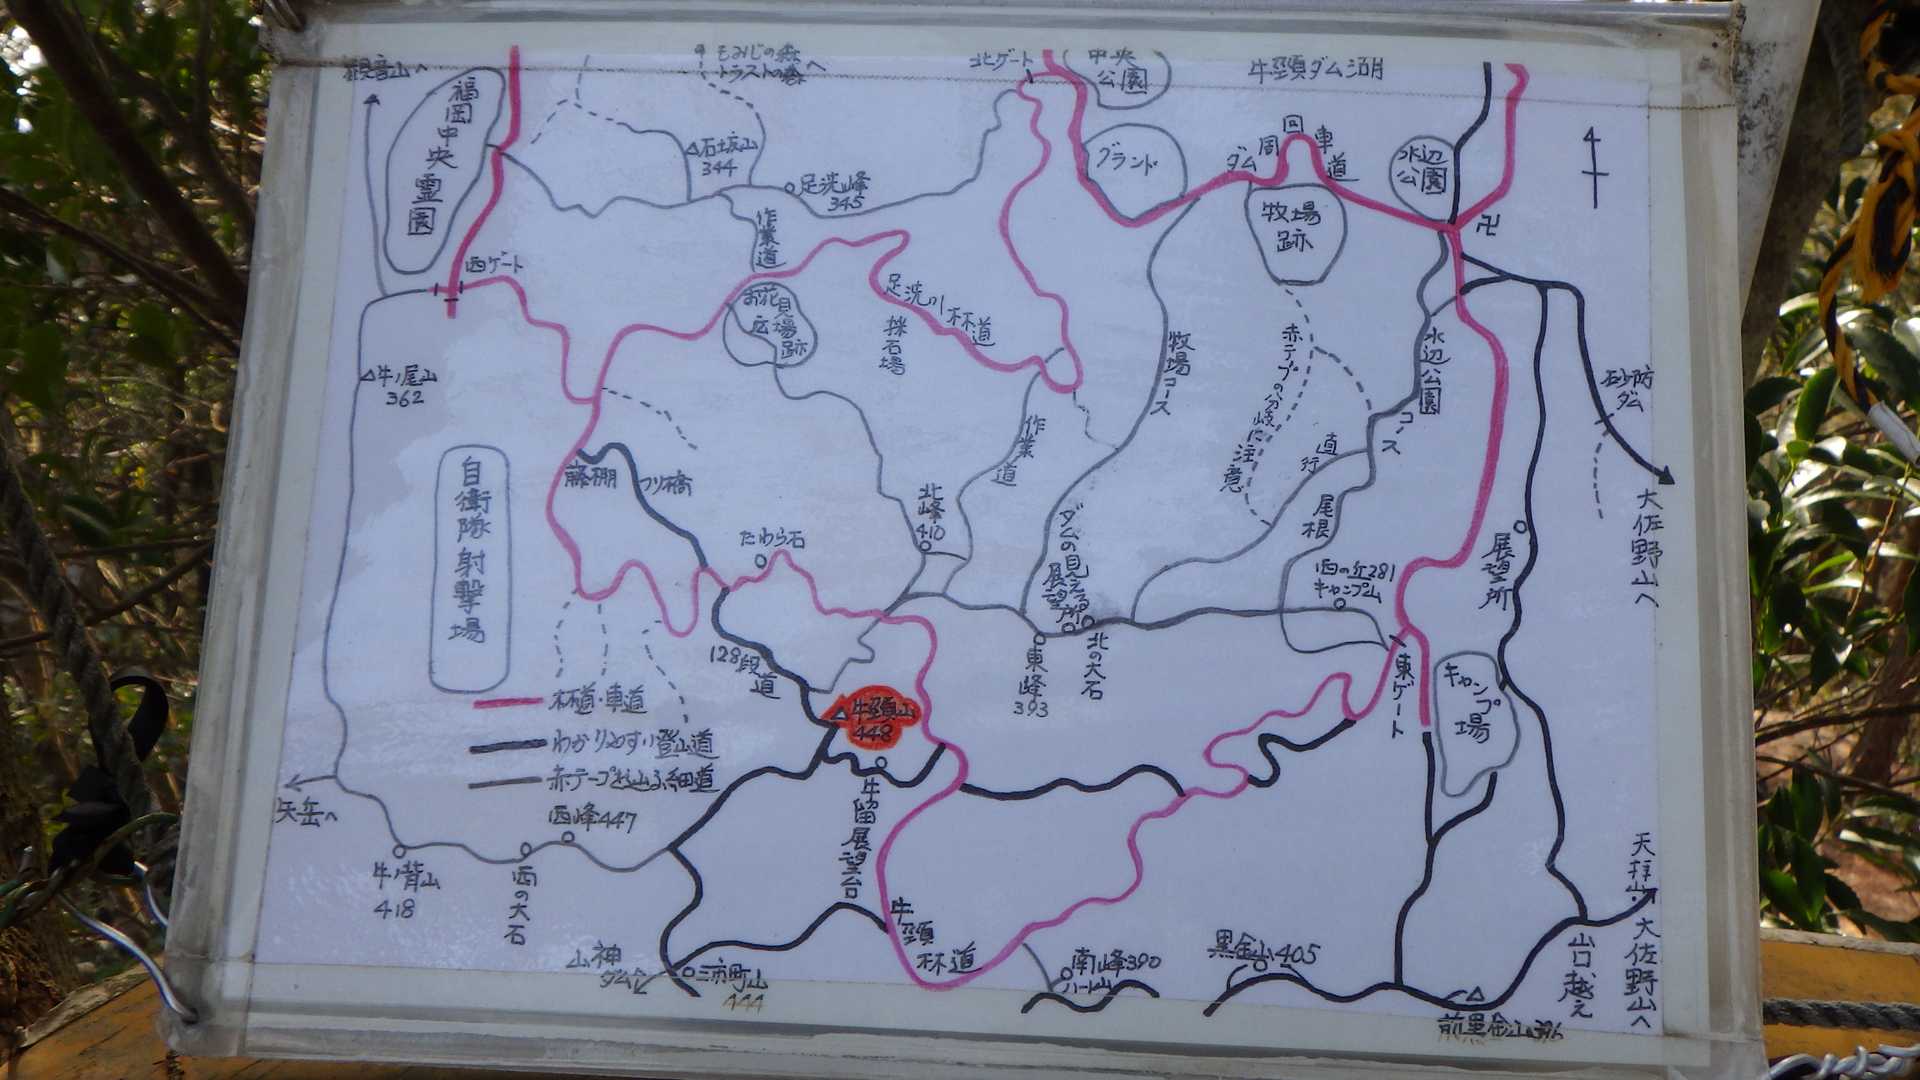 観音山へ
福岡中央霊園
もみじの森
トラストの森へ
北ゲート
中央
公園
牛頸ダム湖
△石坂山
344
足洗峰
345
グランド
ダム周回車道
水辺
公園
卍
西ゲート
作業道
牧場
跡
お花見
広場跡
足洗川林道
採石場
牧場コース
赤テープの分岐に注意
水辺公園コース
砂防
ダム
△牛ノ尾山
362
作業道
直行
尾根
大佐野山へ
自衛隊射撃場
藤棚
つり橋
北峰
410
たわら石
ダムの見える
展望所
西の丘281
キャンプ山
展望所
128段道
東峰
393
北の大石
東ゲート
キャンプ
場
林道・車道
わかりやすい登山道
△牛頸山
448
矢岳へ
西峰447
牛留展望台
牛ノ背山
418
西の大石
牛頸林道
天拝山・大佐野山へ
山口越え
山神
ダムへ
三市町山
444
南峰390
ハート山
黒金山405
前黒金山396